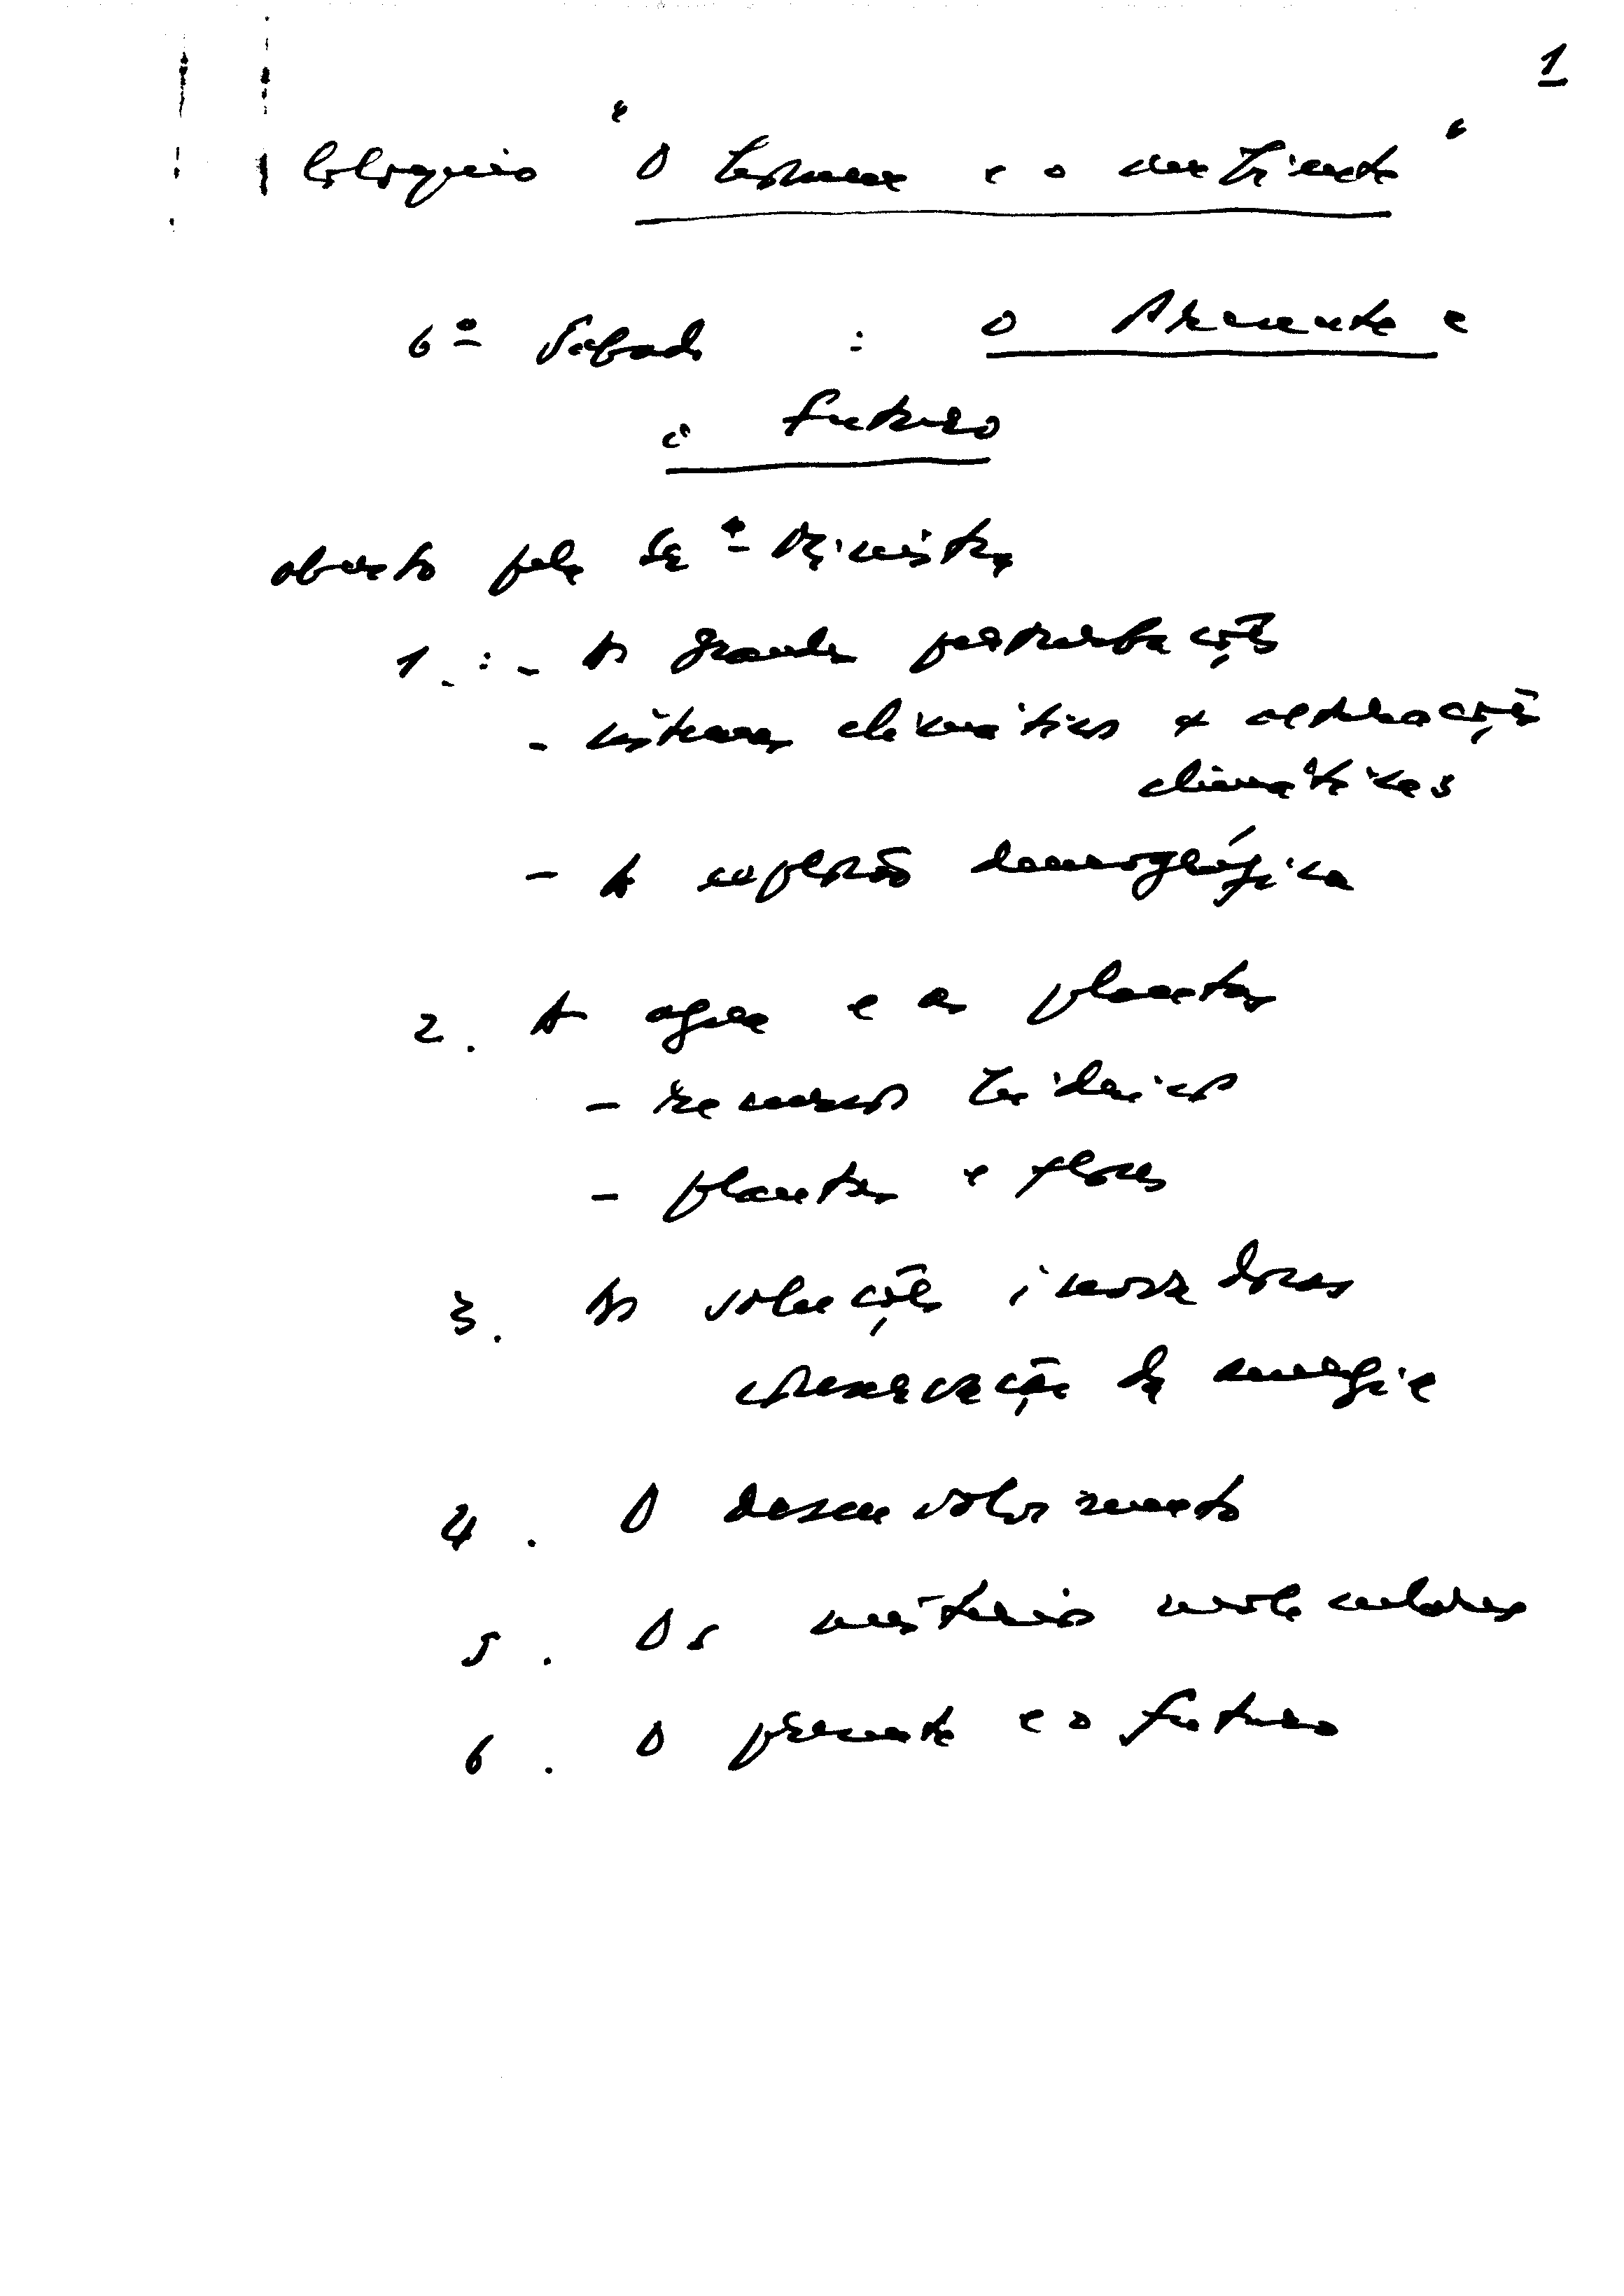 1
Coloquio "O homem e o ambiente"
6º Sabado : O Presente e
o futuro
aberto pela Srª Ministra
1. : - As grandes perturbações
- sistemas climáticos e alterações
climáticas
- A explosão demográfica
2. A agua e as plantas
- recursos hidricos
- plantas e flores
3. As soluções inovadoras
conservação da energia
4. O desenvolvimento
5. Os mistérios moleculares
6. O presente e o futuro